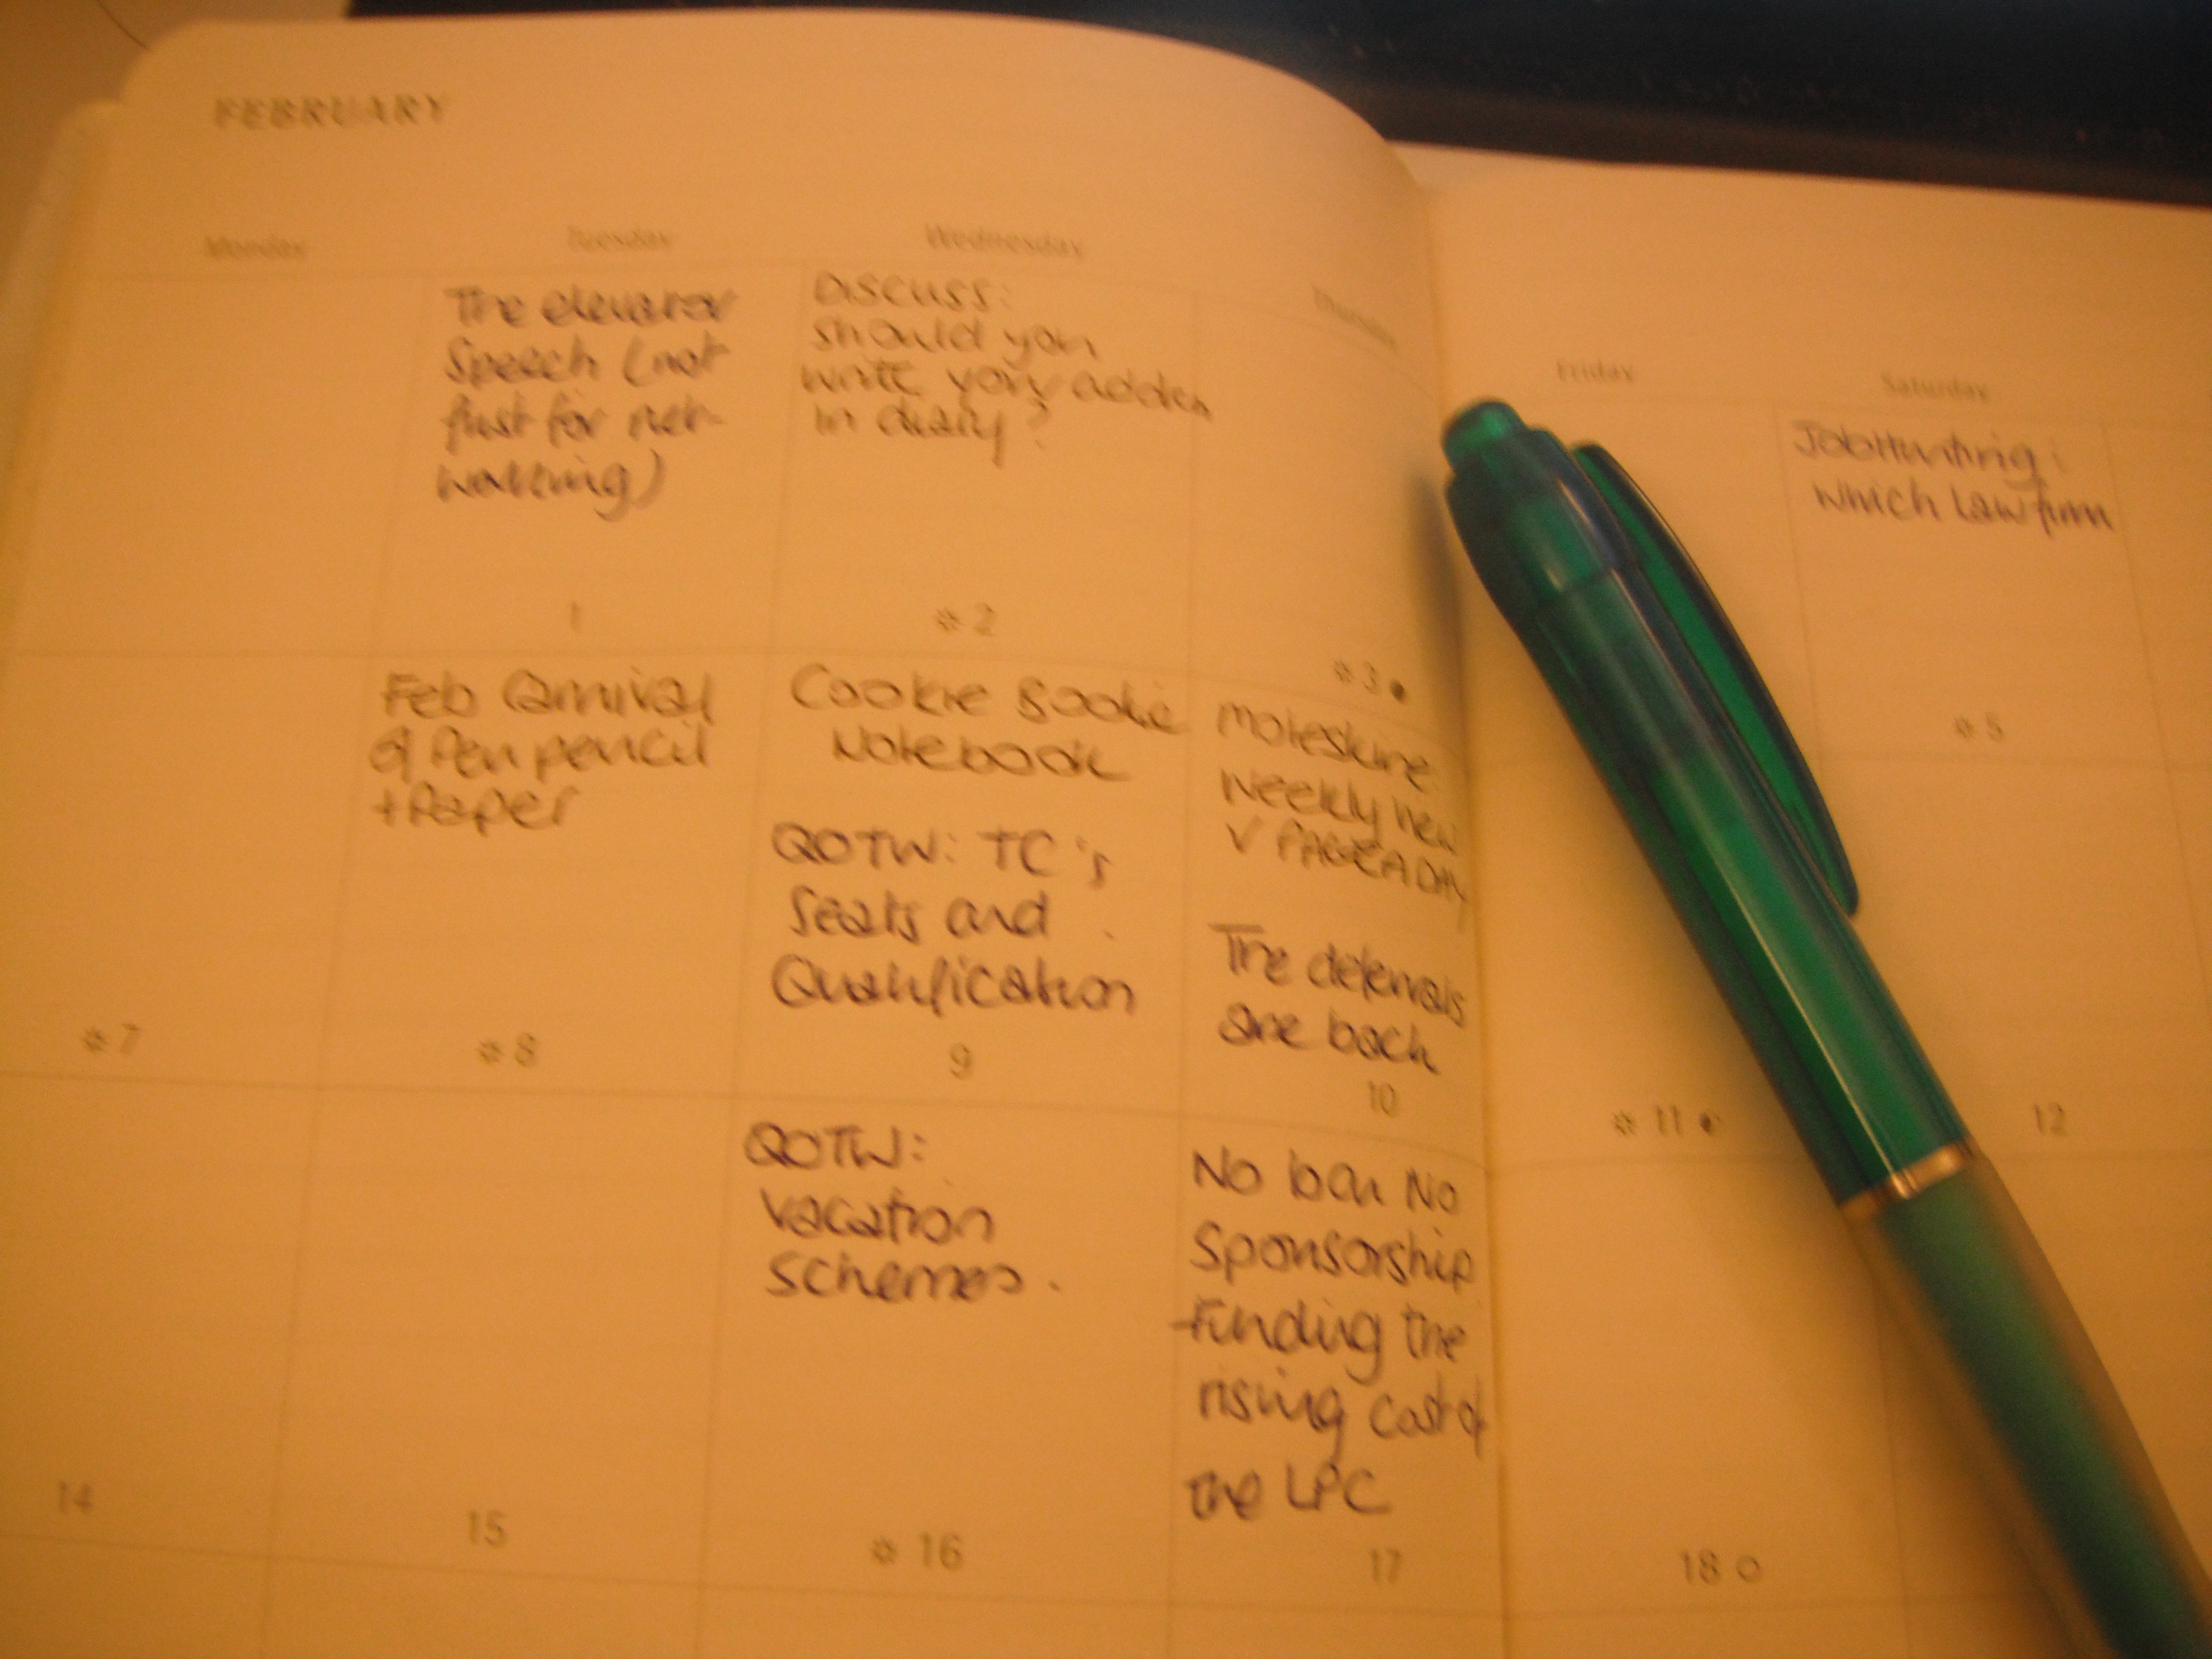 FEBRUARY
Monday
Tuesday
Wednesday
Thursday
Friday
Saturday
The elevator
Speech (not
just for net-
working)
1
Discuss:
should you
write your address
in diary?
2
3
Jobhunting:
which law firm
5
7
Feb Carnival
of Pen pencil
+ Paper
8
Cookie Bookie
Notebook
QOTW: TC's
Seats and
Qualification
9
Moleskine:
Weekly view
V PAGE A DAY
The deferrals
are back
10
11
12
14
15
QOTW:
Vacation
Schemes.
16
No bar No
Sponsorship
-Funding the
rising cost of
the LPC
17
18